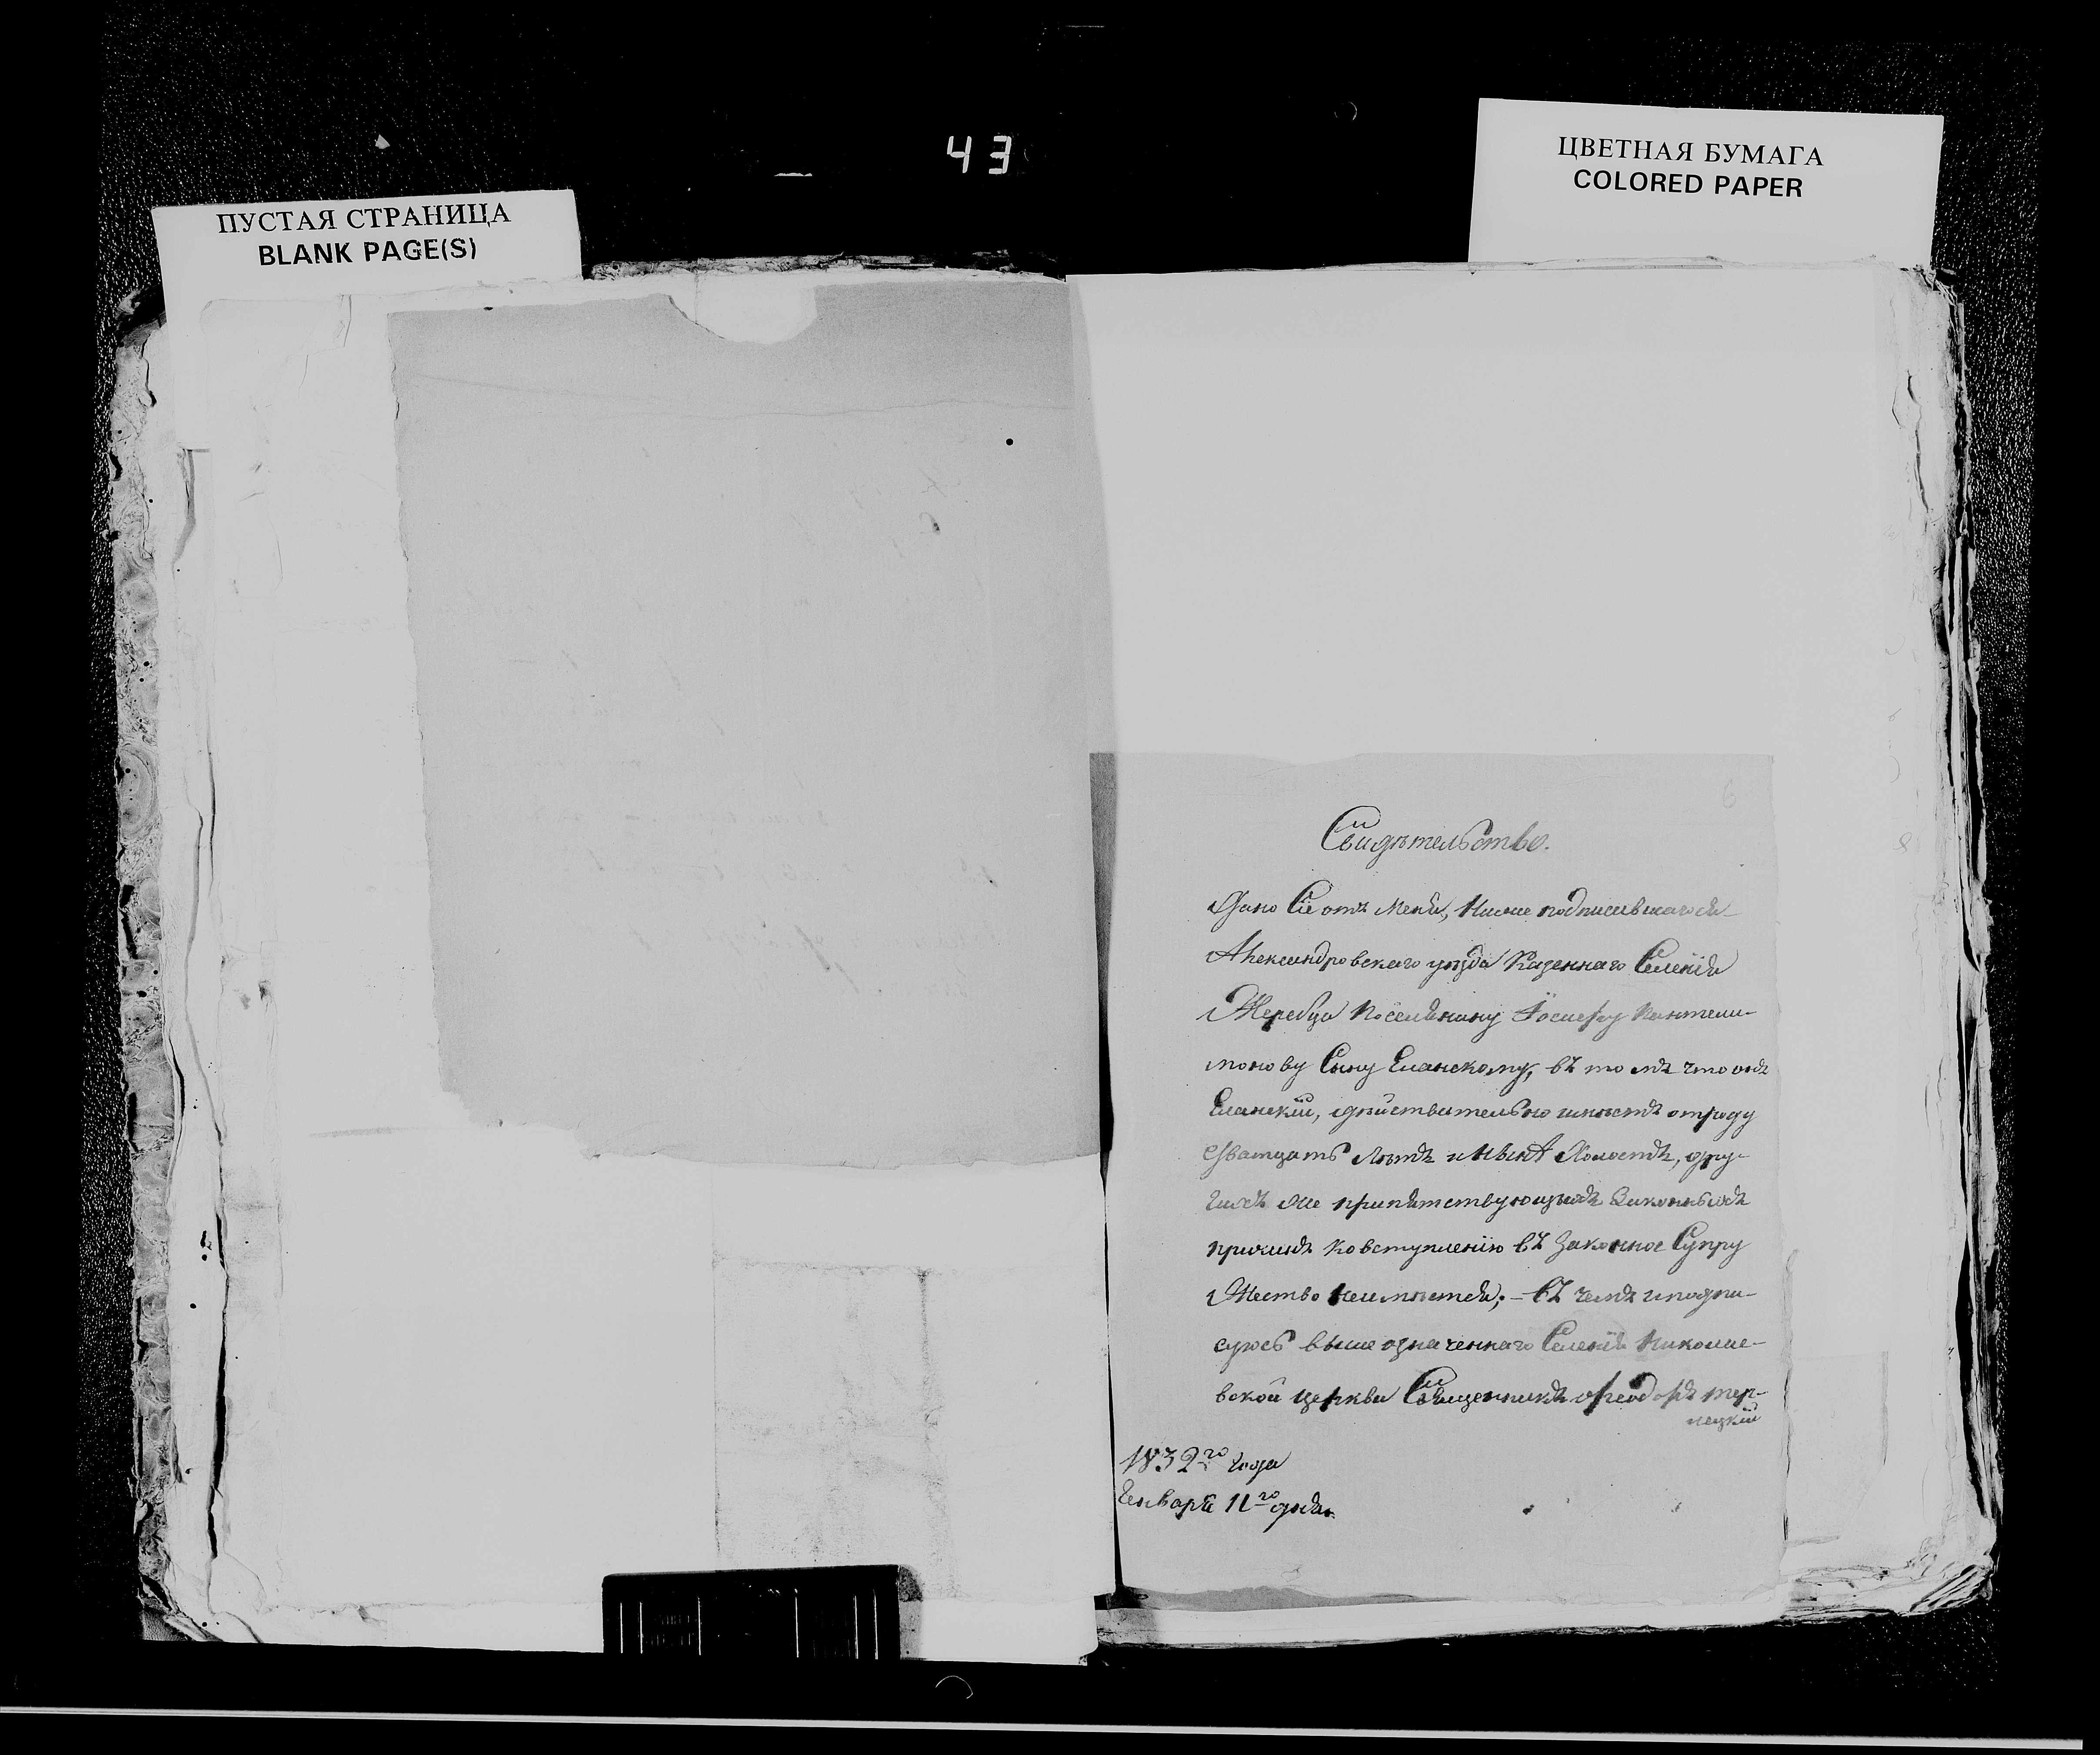 43
ПУСТАЯ СТРАНИЦА
BLANK PAGE(S)
ЦВЕТНАЯ БУМАГА
COLORED PAPER
6
Свидѣтельство.
Дано Сіе отъ меня, ниже подписавшагося
Александровскаго уѣзда Казеннаго Селенія
Жеребца поселянину Іосифу Пантели-
монову Сыну Еланскому, въ томъ что онъ
Еланскій, дѣйствительно имѣетъ отроду
Дватцать лѣтъ и нынѣ холостъ, дру-
гихъ же препятствующихъ законныхъ
причинъ ко вступленію въ Законное Супру
жество неимѣется; – въ чемъ и подпи-
суюсь выше означеннаго Селенія Николае-
вской церкви Священникъ Ѳеодоръ Тер-
лецкій
1832го года
Генваря 11го дня.